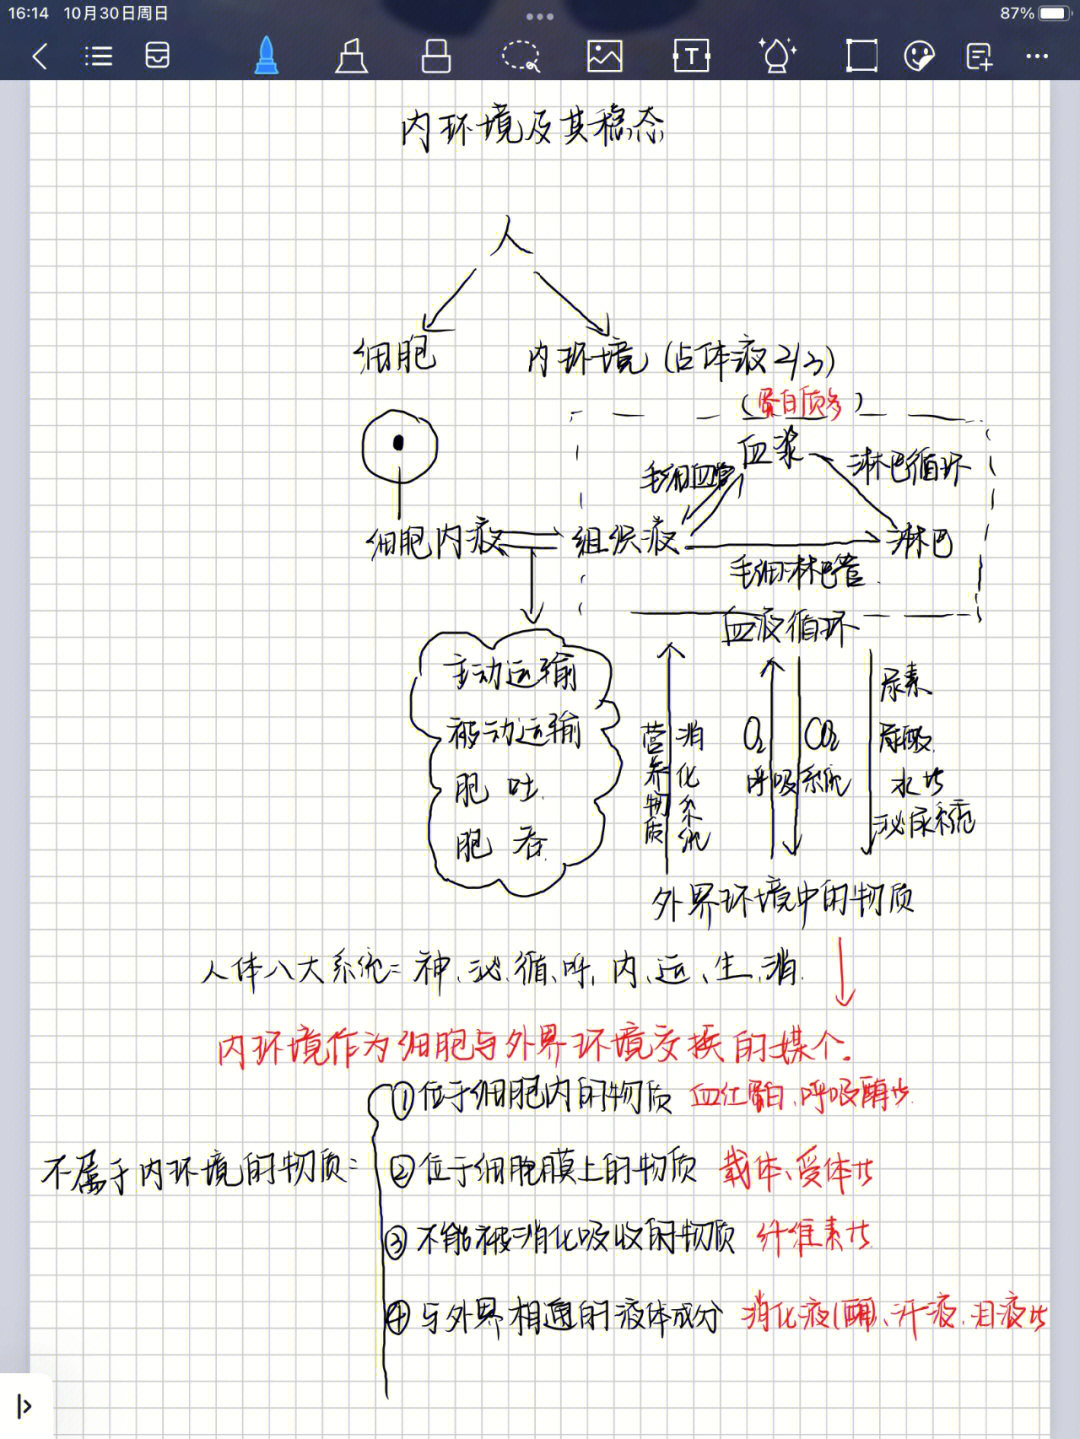 16:14 10月30日周日
87%
T
内环境及其稳态
人
细胞
内环境(占体液2/3)
(蛋白质多)
血浆
毛细血管
淋巴循环
细胞内液
组织液
淋巴
毛细淋巴管
血液循环
主动运输
被动运输
胞吐
胞吞
营养物质
消化系统
O₂
CO₂
呼吸系统
尿素
尿酸
水等
泌尿系统
外界环境中的物质
人体八大系统:神、泌、循、呼、内、运、生、消.
内环境作为细胞与外界环境交换的媒介.
不属于内环境的物质:
①位于细胞内的物质 血红蛋白、呼吸酶等
②位于细胞膜上的物质 载体、受体等
③不能被消化吸收的物质 纤维素等
④与外界相通的液体成分 消化液(酶)、汗液、泪液等